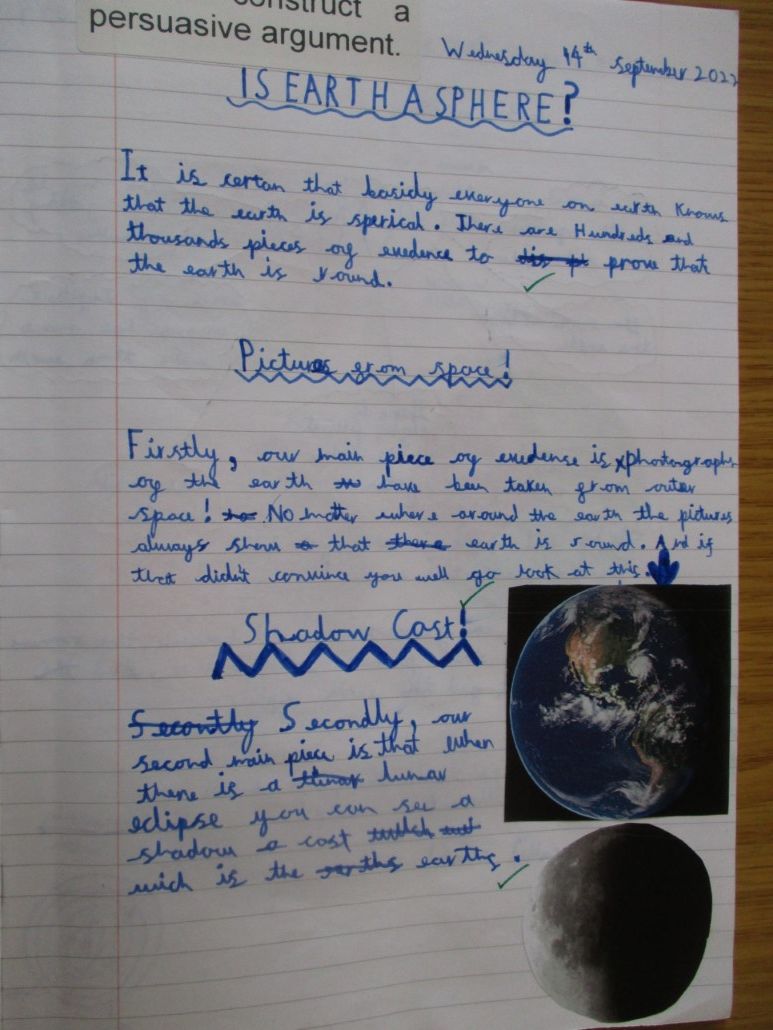 construct a
persuasive argument.
Wednesday 14th september 2022
IS EARTH A SPHERE?
It is certan that basidy everyone on earth knows
that the earth is sperical. There are Hundreds and
thousands pieces of evedence to dis pt prove that
the earth is round.
Pictures from space!
Firstly, our main piece of evedense is photographs
of the earth have been taken from outer
space! No matter where around the earth the pictures
always show a that there earth is round. And if
that didn't convince you well go look at this.
Shadow Cast!
Secontly Secondly, our
second main piece is that when
there is a lunar
eclipse you can see a
shadow a cast
wich is the earths earths.